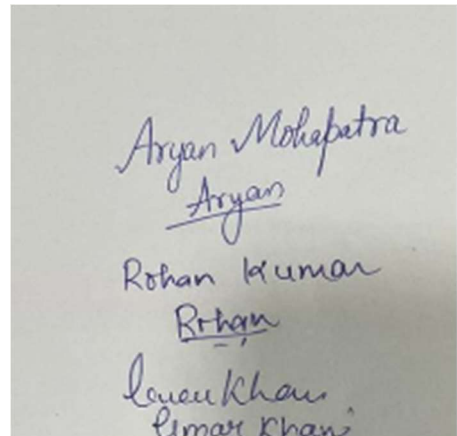 Aryan Mohapatra
Aryan
Rohan Kumar
Rohan
Khan
Umar Khan